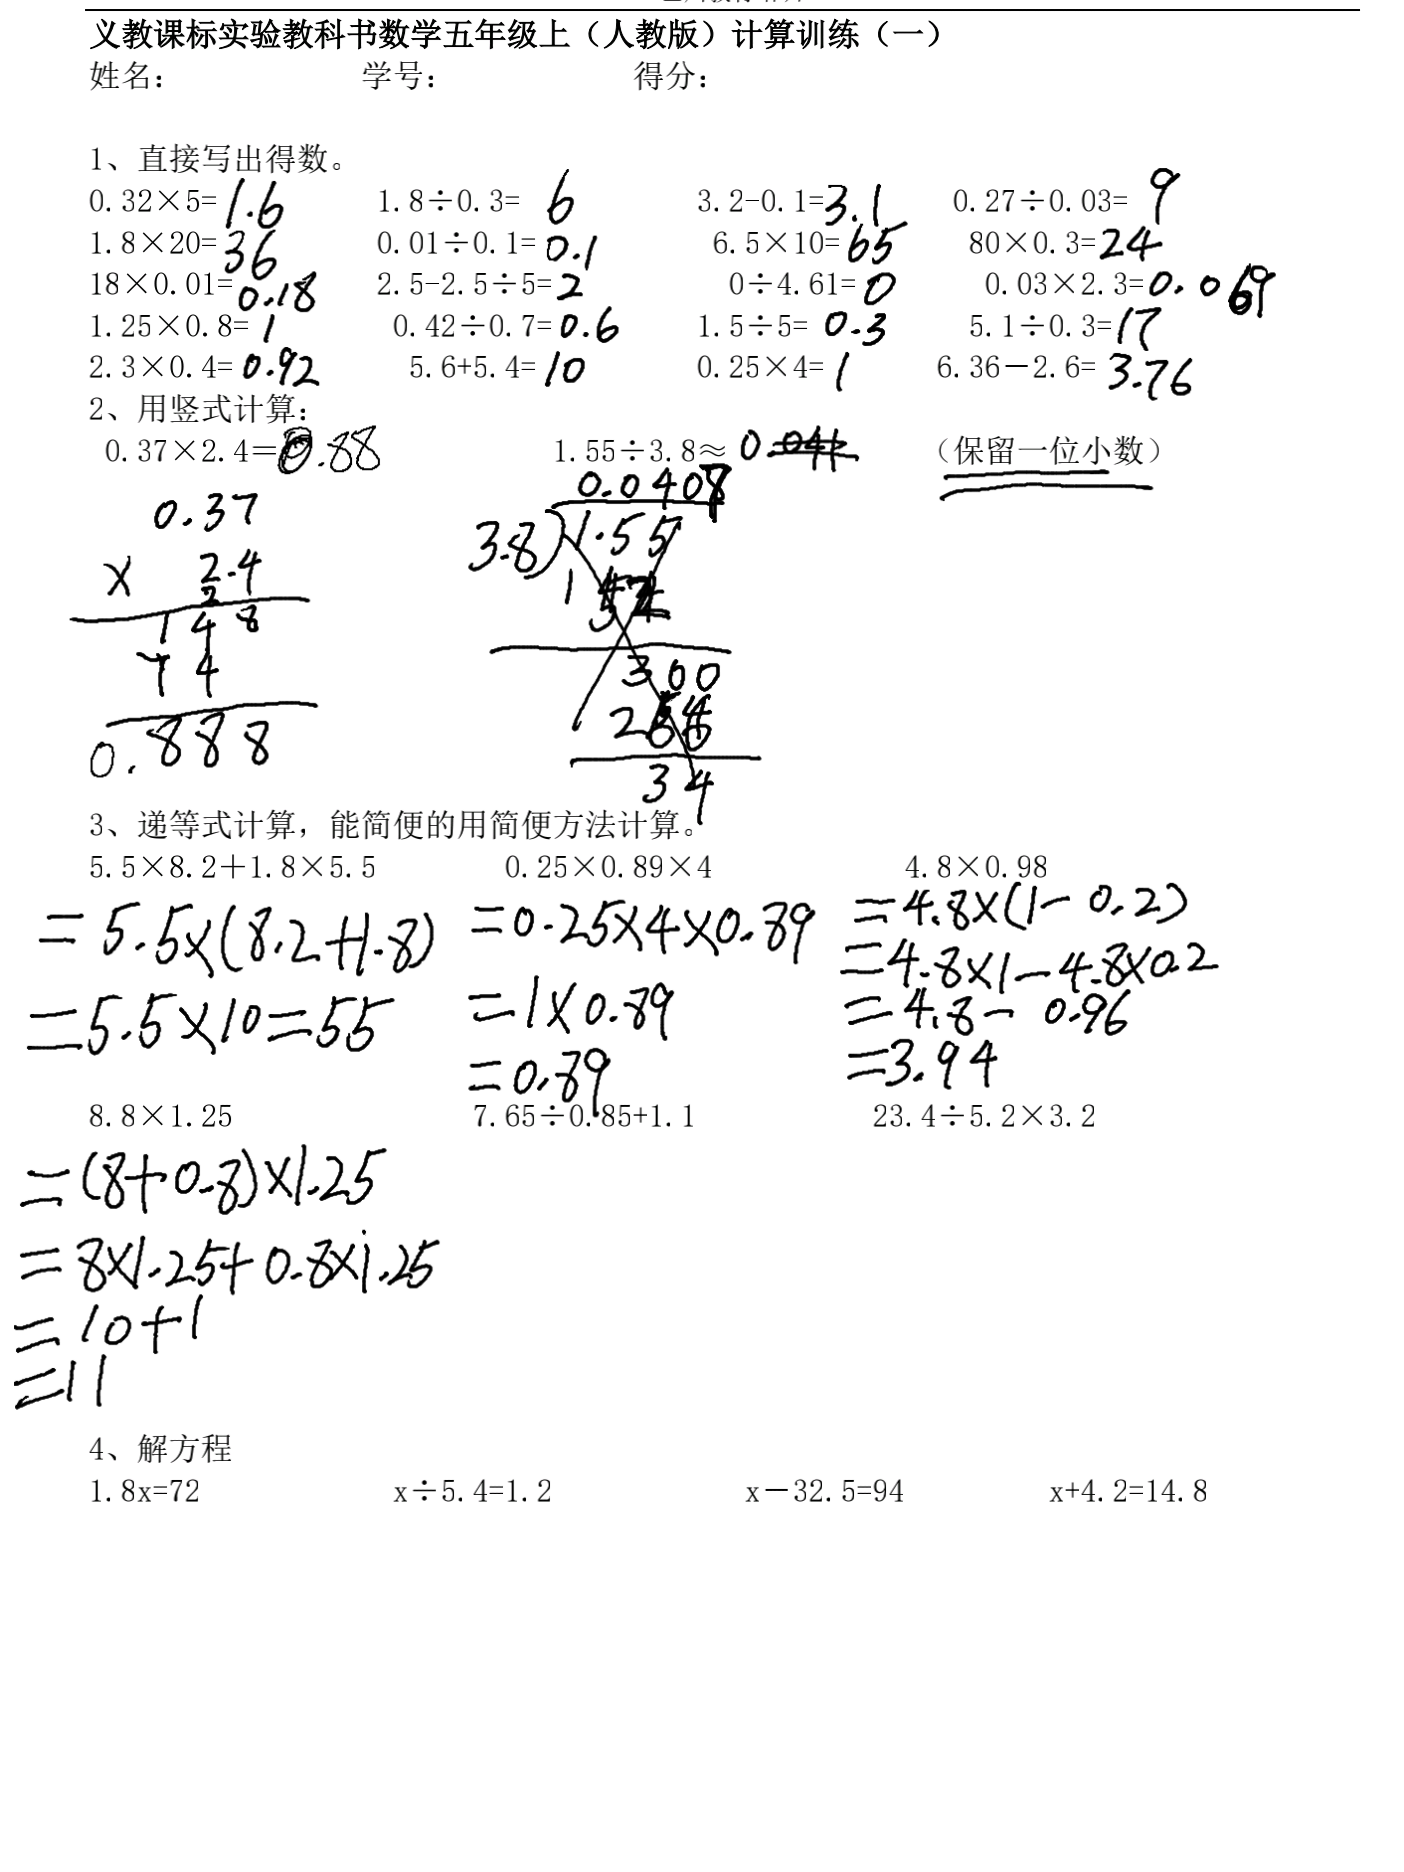 义教课标实验教科书数学五年级上（人教版）计算训练（一）
姓名： 学号： 得分：
1、直接写出得数。
0.32×5=1.6 1.8÷0.3= 6 3.2-0.1=3.1 0.27÷0.03= 9
1.8×20=36 0.01÷0.1=0.1 6.5×10=65 80×0.3=24
18×0.01=0.18 2.5-2.5÷5=2 0÷4.61=0 0.03×2.3=0.069
1.25×0.8=1 0.42÷0.7=0.6 1.5÷5= 0.3 5.1÷0.3=17
2.3×0.4=0.92 5.6+5.4=10 0.25×4=1 6.36－2.6= 3.76
2、用竖式计算：
0.37×2.4＝0.88 1.55÷3.8≈ 0.041 （保留一位小数）
0.37
× 2.4
2
148
74
0.888
0.0407
3.8 1.55
1
300
2
34
3、递等式计算，能简便的用简便方法计算。
5.5×8.2＋1.8×5.5 0.25×0.89×4 4.8×0.98
=5.5×(8.2+1.8) =0.25×4×0.89 =4.8×(1-0.2)
=4.8×1-4.8×0.2
=5.5×10=55 =1×0.89 =4.8-0.96
=0.89 =3.94
8.8×1.25 7.65÷0.85+1.1 23.4÷5.2×3.2
=(8+0.8)×1.25
=8×1.25+0.8×1.25
=10+1
=11
4、解方程
1.8x=72 x÷5.4=1.2 x－32.5=94 x+4.2=14.8